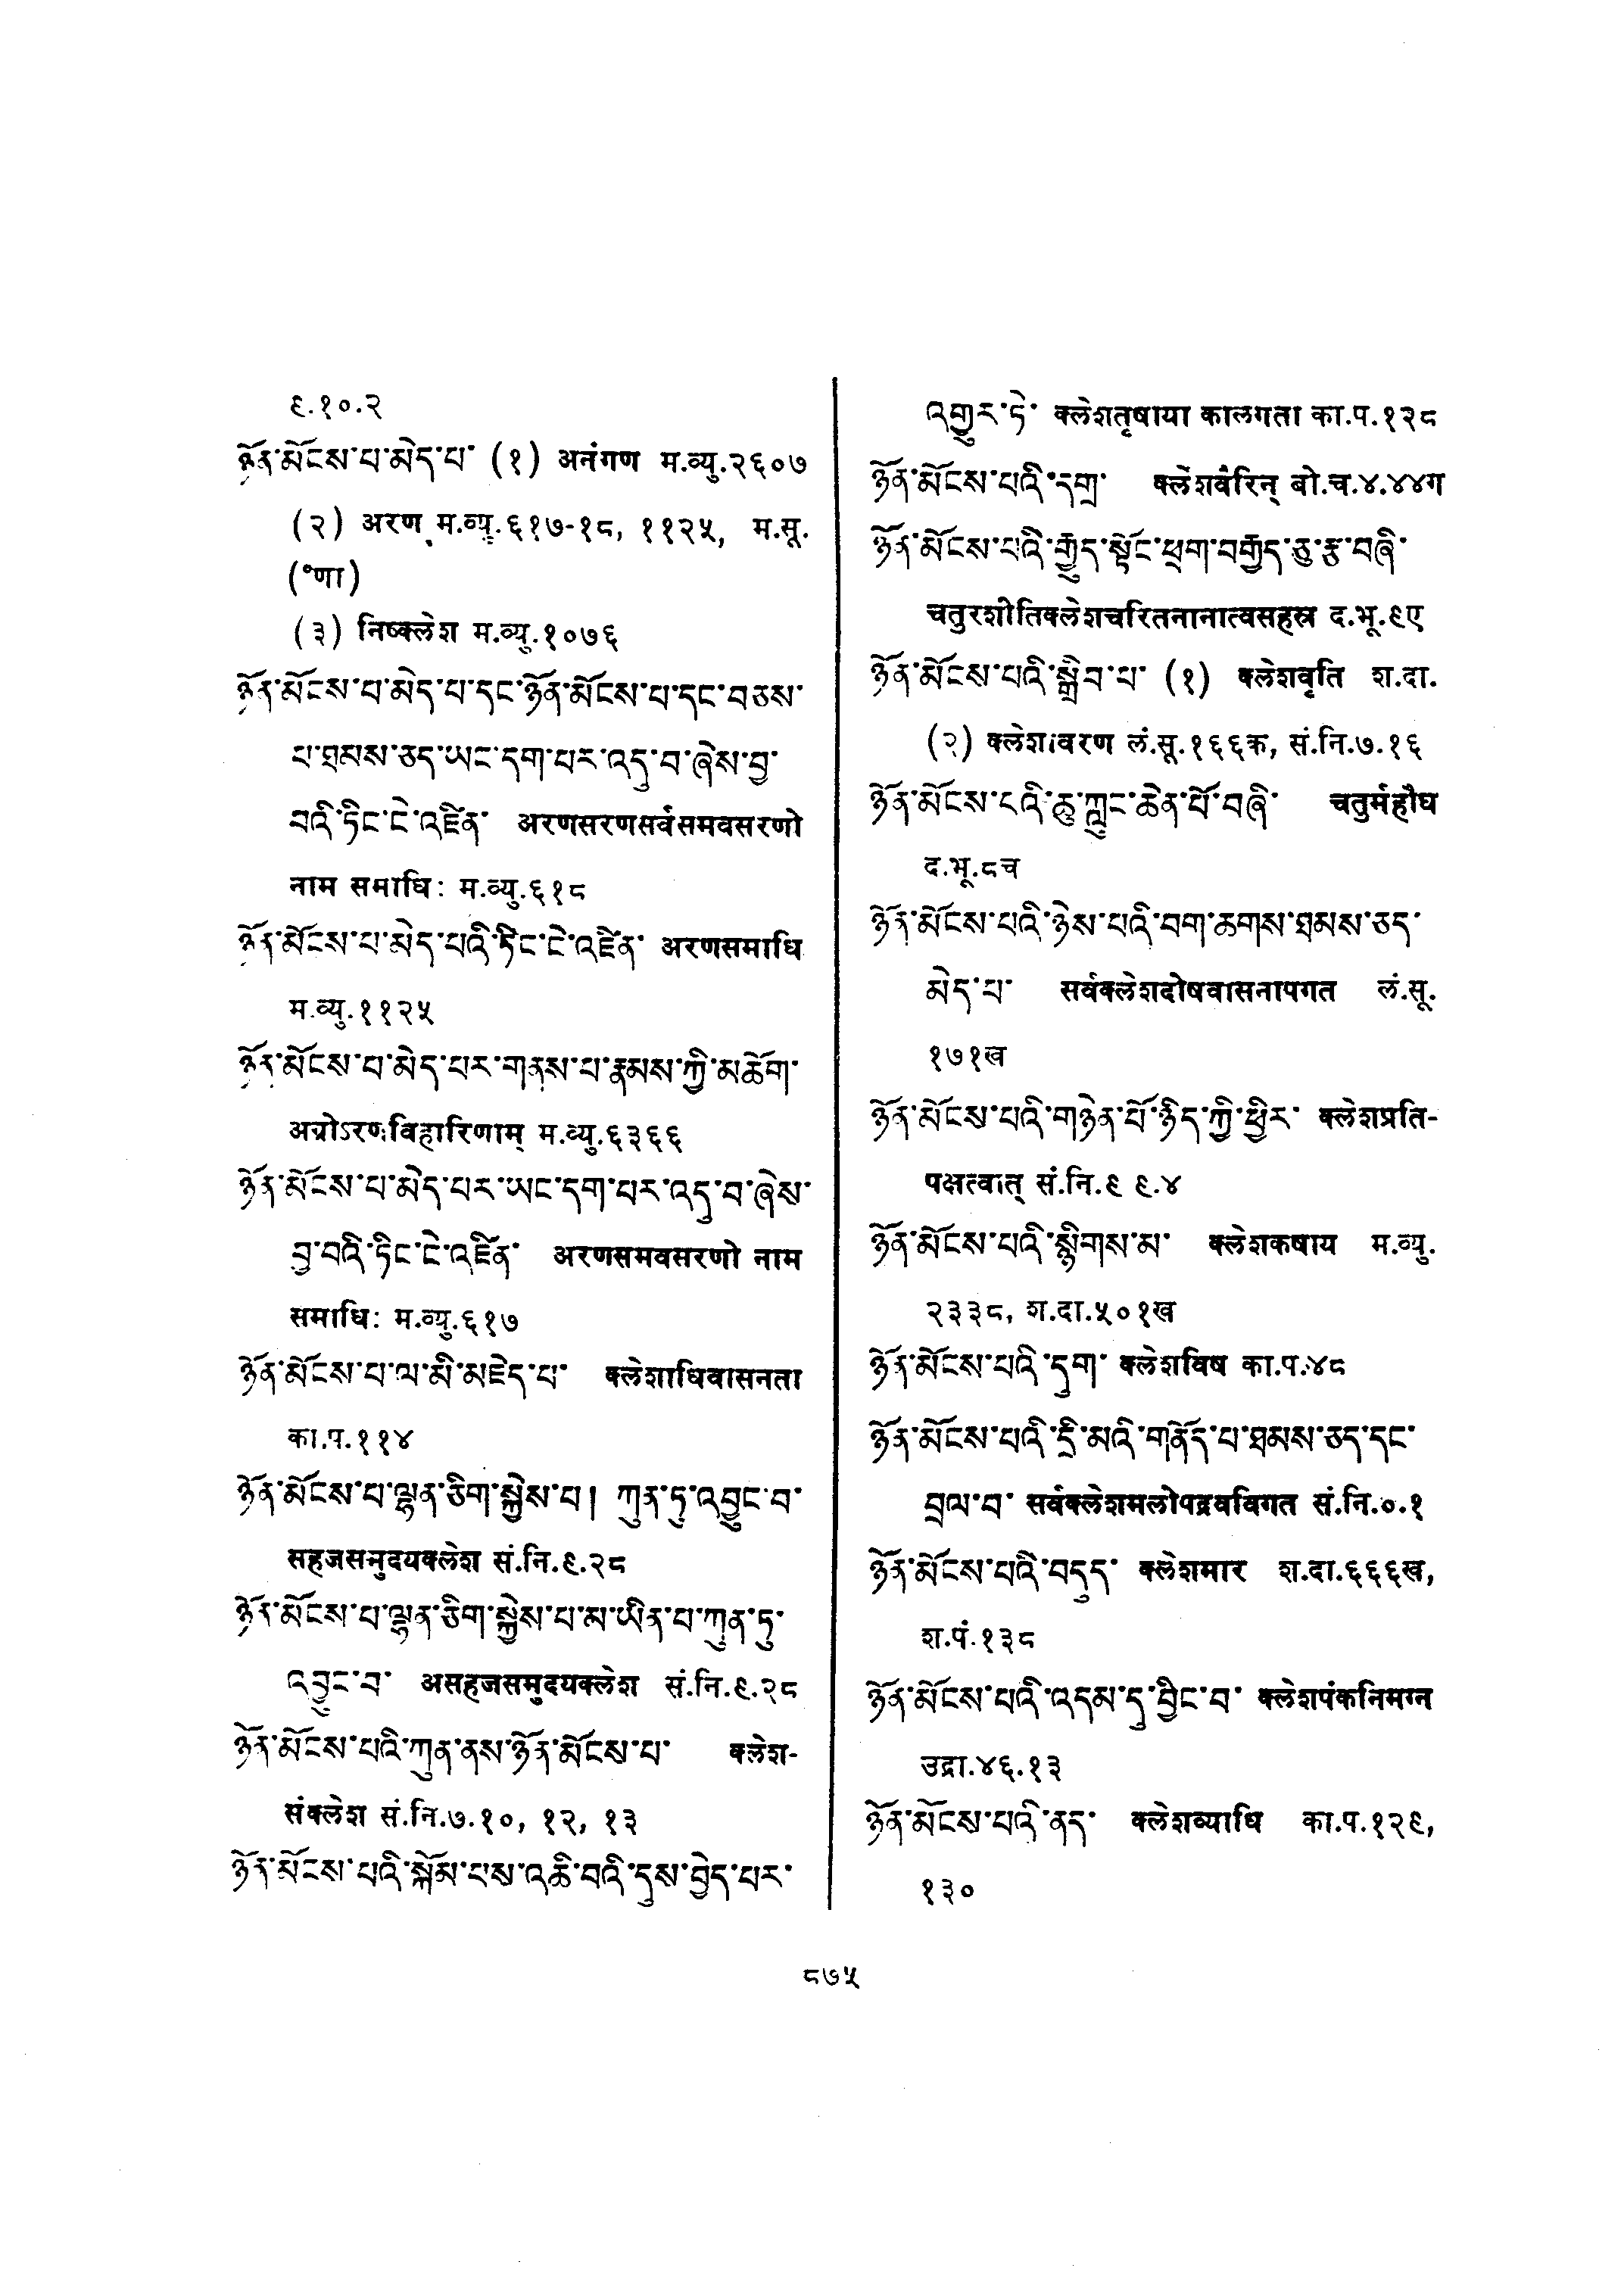 ९.१०.२
ཉོན་མོངས་པ་མེད་པ་ (१) अनंगण म.व्यु.२६०७
(२) अरण म.व्यु.६१७-१८, ११२५, म.सू.
(°णा)
(३) निष्क्लेश म.व्यु.१०७६
ཉོན་མོངས་པ་མེད་པ་དང་ཉོན་མོངས་པ་དང་བཅས་
པ་ཐམས་ཅད་ཡང་དག་པར་འདུ་བ་ཞེས་བྱ་
བའི་ཏིང་ངེ་འཛིན་ अरणसरणसर्वसमवसरणो
नाम समाधिः म.व्यु.६१८
ཉོན་མོངས་པ་མེད་པའི་ཏིང་ངེ་འཛིན་ अरणसमाधि
म.व्यु.११२५
ཉོན་མོངས་པ་མེད་པར་གནས་པ་རྣམས་ཀྱི་མཆོག་
अग्रोऽरणविहारिणाम् म.व्यु.६३६६
ཉོན་མོངས་པ་མེད་པར་ཡང་དག་པར་འདུ་བ་ཞེས་
བྱ་བའི་ཏིང་ངེ་འཛིན་ अरणसमवसरणो नाम
समाधिः म.व्यु.६१७
ཉོན་མོངས་པ་ལ་མི་མཇེད་པ་ क्लेशाधिवासनता
का.प.११४
ཉོན་མོངས་པ་ལྷན་ཅིག་སྐྱེས་པ། ཀུན་ཏུ་འབྱུང་བ་
सहजसमुदयक्लेश सं.नि.९.२८
ཉོན་མོངས་པ་ལྷན་ཅིག་སྐྱེས་པ་མ་ཡིན་པ་ཀུན་ཏུ་
འབྱུང་བ་ असहजसमुदयक्लेश सं.नि.९.२८
ཉོན་མོངས་པའི་ཀུན་ནས་ཉོན་མོངས་པ་ क्लेश-
संक्लेश सं.नि.७.१०, १२, १३
ཉོན་མོངས་པའི་སྐོམ་པས་འཆི་བའི་དུས་བྱེད་པར་
འགྱུར་ཏེ་ क्लेशतृषाया कालगता का.प.१२८
ཉོན་མོངས་པའི་དགྲ་ क्लेशवैरिन् बो.च.४.४४ग
ཉོན་མོངས་པའི་རྒྱུད་སྟོང་ཕྲག་བརྒྱད་ཅུ་རྩ་བཞི་
चतुरशीतिक्लेशचरितनानात्वसहस्र द.भू.९ए
ཉོན་མོངས་པའི་སྒྲིབ་པ་ (१) क्लेशवृति श.दा.
(२) क्लेशावरण लं.सू.१६६क, सं.नि.७.१६
ཉོན་མོངས་པའི་ཆུ་ཀླུང་ཆེན་པོ་བཞི་ चतुर्महौघ
द.भू.८च
ཉོན་མོངས་པའི་ཉེས་པའི་བག་ཆགས་ཐམས་ཅད་
མེད་པ་ सर्वक्लेशदोषवासनापगत लं.सू.
१७१ख
ཉོན་མོངས་པའི་གཉེན་པོ་ཉིད་ཀྱི་ཕྱིར་ क्लेशप्रति-
पक्षत्वात् सं.नि.९ ९.४
ཉོན་མོངས་པའི་སྙིགས་མ་ क्लेशकषाय म.व्यु.
२३३८, श.दा.५०१ख
ཉོན་མོངས་པའི་དུག་ क्लेशविष का.प.४८
ཉོན་མོངས་པའི་དྲི་མའི་གནོད་པ་ཐམས་ཅད་དང་
བྲལ་བ་ सर्वक्लेशमलोपद्रवविगत सं.नि.०.१
ཉོན་མོངས་པའི་བདུད་ क्लेशमार श.दा.६६६ख,
श.पं.१३८
ཉོན་མོངས་པའི་འདམ་དུ་བྱིང་བ་ क्लेशपंकनिमग्न
उद्रा.४६.१३
ཉོན་མོངས་པའི་ནད་ क्लेशव्याधि का.प.१२९,
१३०
८७५